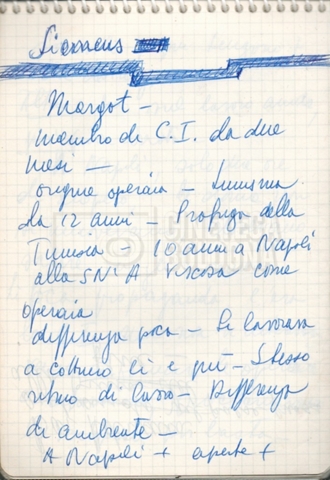 Siemens
Margot -
membro di C.I. da due
mesi -
origine operaia -
da 12 anni - Profuga della
Tunisia - 10 anni a Napoli
alla SNIA Viscosa come
operaia
differenza poca - Si lavorava
a cottimo lì e qui - Stesso
ritmo di lavoro - Differenza
di ambiente -
A Napoli + aperte +